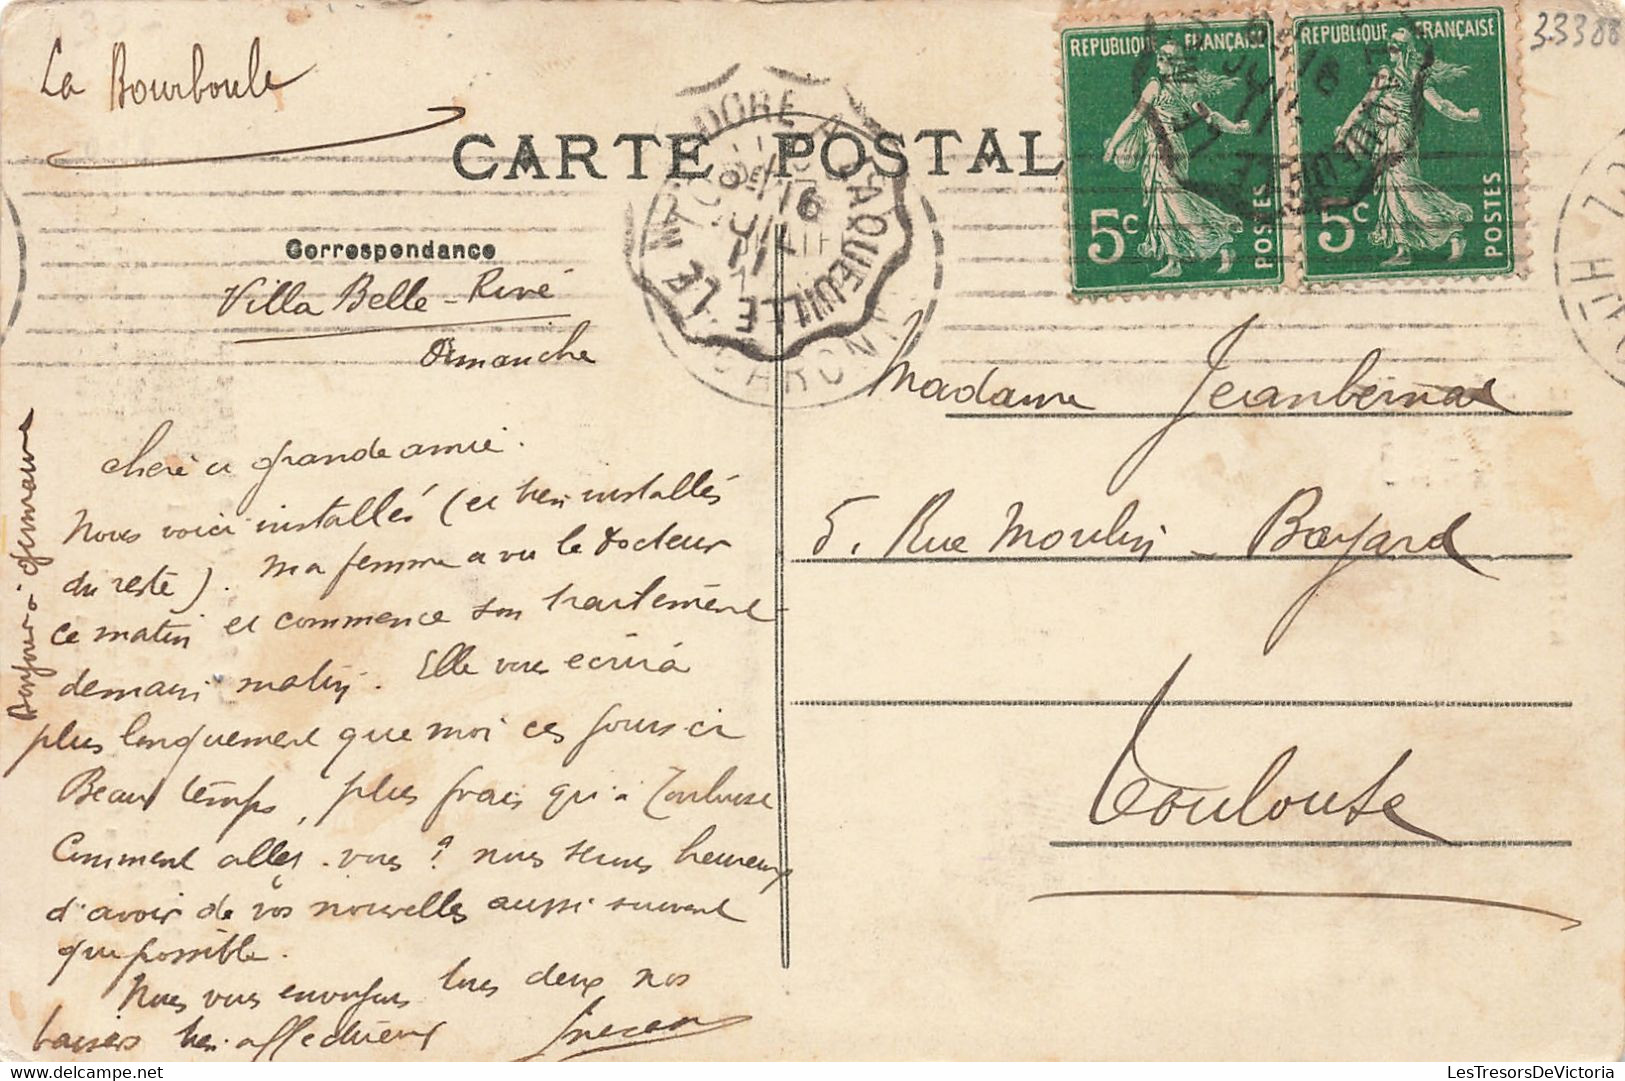 La Bourboule
33388
CARTE POSTALE
REPUBLIQUE FRANÇAISE
5c
POSTES
REPUBLIQUE FRANÇAISE
5c
POSTES
LE MT DORE A LAQUEUILLE
Correspondance
Villa Belle-Rive
Dimanche
Chère et grande amie.
Nous voici installés (et bien installés
du reste). Ma femme a vu le docteur
ce matin et commence son traitement
demain matin. Elle vous écrira
plus longuement que moi ces jours ci
Beau temps, plus frais qu'à Toulouse
Comment allez-vous? nous serons heureux
d'avoir de vos nouvelles aussi souvent
que possible.
Nous vous envoyons tous deux nos
baisers bien affectueux
Bonjour à Germaine
Madame Jeanbernat
5. Rue Moulin-Bayard
Toulouse
LesTresorsDeVictoria